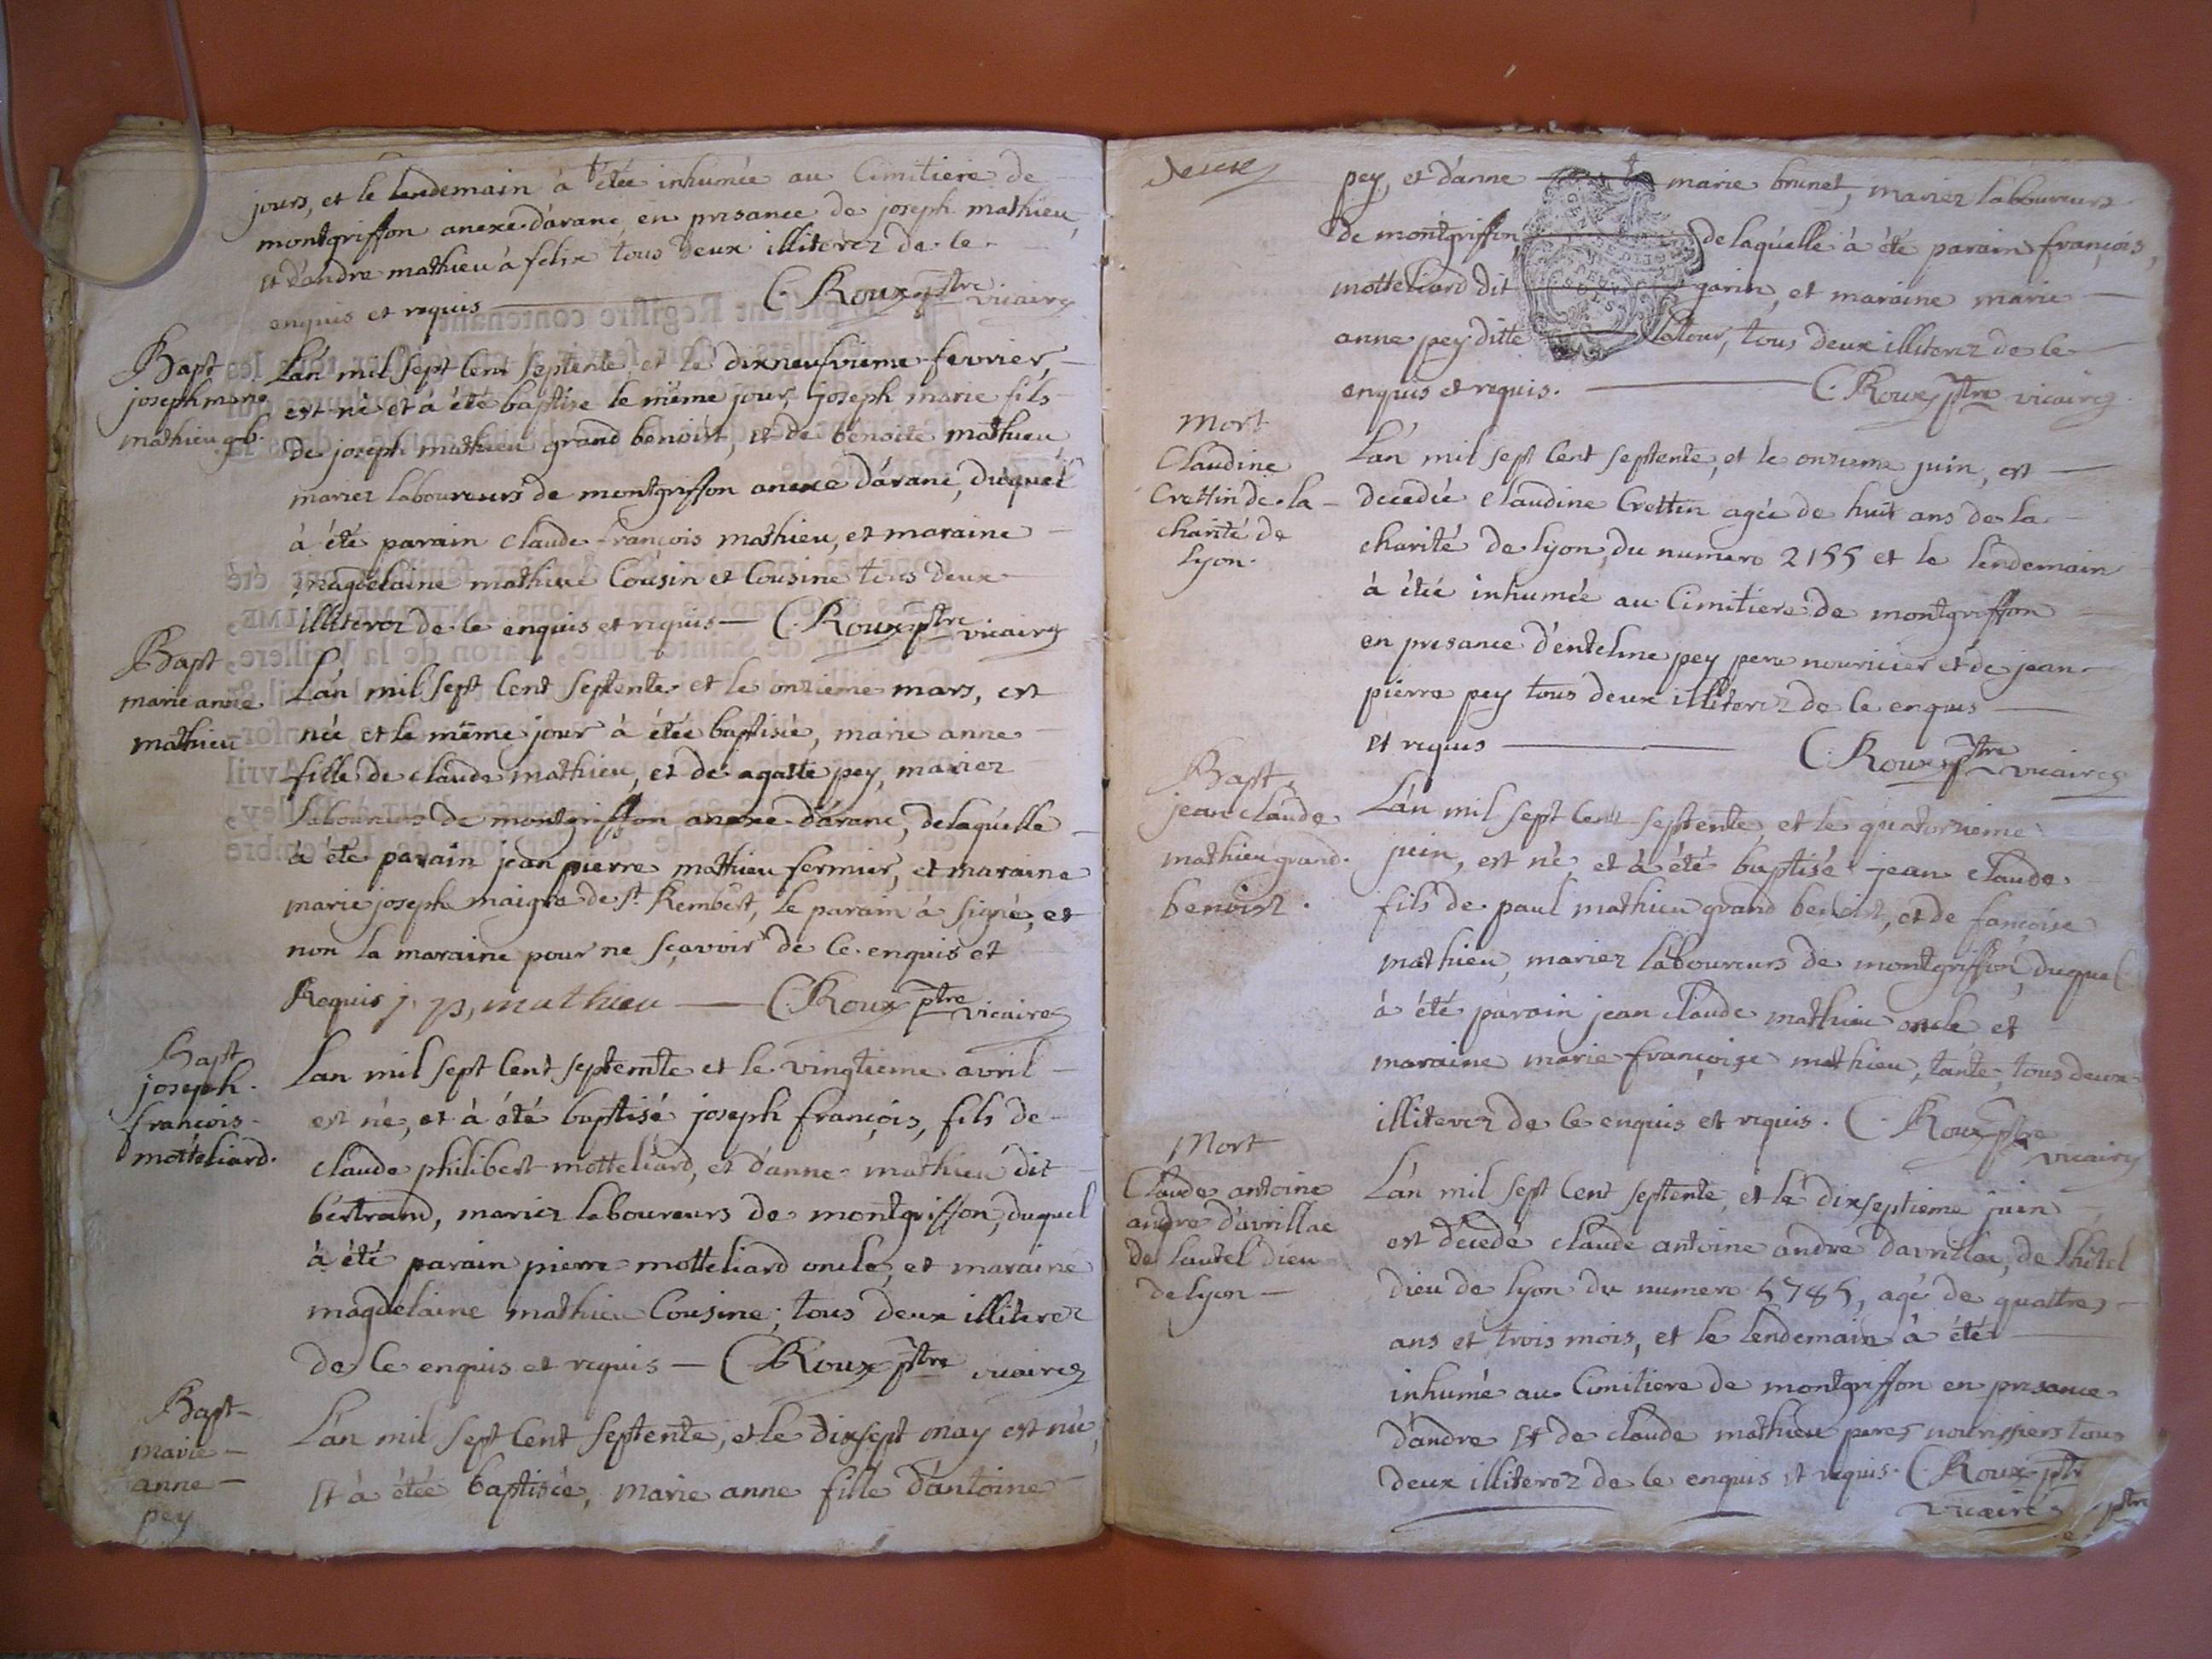 jours, et le lendemain à étée inhumée au Cimitiere de
montgriffon anexe d'aranc, en presance de joseph mathieu,
et d'andre mathieu à felix tous deux illiterez de ce
enquis et requis C. Roux ptre vicaire
Bapt
joseph marie
mathieu g.b.
L'an mil sept Cent septente et le dixneufvieme fevrier,
est né et à été baptise le même jour joseph marie fils
de joseph mathieu grand benoist, et de benoite mathieu
mariez laboureurs de montgriffon anexe d'aranc, duquel
à été parain claude françois mathieu, et maraine
magdelaine mathieu Cousin et Cousine tous deux
illiterez de ce enquis et requis C. Roux ptre vicaire
Bapt
marie anne
mathieu
L'an mil sept Cent septente et le onzieme mars, est
née et le même jour à étée baptisée, marie anne
fille de claude mathieu, et de agatte pey, mariez
laboureurs de montgriffon anexe d'aranc, delaquelle
à été parain jean pierre mathieu fermier, et maraine
marie joseph maigre de St. Rembert, le parain à signé, et
non la maraine pour ne sçavoir de ce enquis et
Requis j. p, mathieu C. Roux ptre vicaire
Bapt
joseph
françois
motteliard.
L'an mil sept Cent septente et le vingtieme avril
est né, et à été baptisé joseph françois, fils de
claude philibert motteliard, et d'anne mathieu dit
bertrand, mariez laboureurs de montgriffon, duquel
à été parain pierre motteliard oncle, et maraine
magdelaine mathieu Cousine; tous deux illiterez
de ce enquis et requis C. Roux ptre vicaire
Bapt
marie
anne
pey
L'an mil sept Cent septente, et le dixsept may est née,
et à étée baptisée, marie anne fille d'antoine
deux
pey, et d'anne marie brunet, mariez laboureurs
de montgriffon, delaquelle à été parain françois,
motteliard dit garin, et maraine marie
anne pey ditte latour, tous deux illiterez de ce
enquis et requis. C. Roux ptre vicaire
Mort
Claudine
Crettin de la
charité de
Lyon.
L'an mil sept Cent septente, et le onzieme juin, est
decedée claudine Crettin agée de huit ans de la
charité de lyon, du numero 2155 et le lendemain
à étée inhumée au Cimitiere de montgriffon
en presance d'entelme pey pere nouricier et de jean
pierre pey tous deux illiterez de ce enquis
et requis C. Roux ptre vicaire
Bapt,
jean claude
mathieu grand
benoist.
L'an mil sept Cent septente, et le quatorzieme
juin, est né, et à été baptisé jean claude
fils de paul mathieu grand benoist, et de françoise
mathieu, mariez laboureurs de montgriffon, duquel
à été parain jean claude mathieu oncle et
maraine marie françoise mathieu, tante, tous deux
illiterez de ce enquis et requis. C. Roux ptre
vicaire
Mort
Claude antoine
andre d'avrillac
de l'autel dieu
de lyon
L'an mil sept Cent septente, et le dixseptieme juin
est decedé claude antoine andre d'avrillac, de l'hôtel
dieu de lyon du numero 5785, agé de quattre
ans et trois mois, et le lendemain à été
inhumé au Cimitiere de montgriffon en presance
d'andre et de claude mathieu peres nourissiers tous
deux illiterez de ce enquis et requis. C. Roux ptre
vicaire ptre